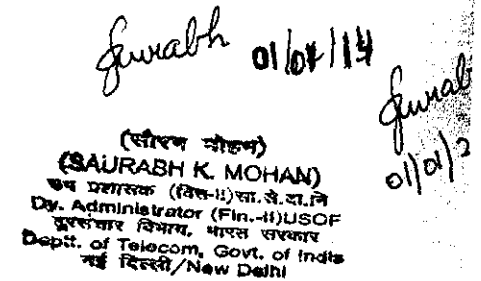 Saurabh 01/01/14
Saurab
01/01/2
(सौरभ मोहन)
(SAURABH K. MOHAN)
उप प्रशासक (वित्त-II)सा.से.दा.नि
Dy. Administrator (Fin.-II)USOF
दूरसंचार विभाग, भारत सरकार
Deptt. of Telecom, Govt. of India
नई दिल्ली/New Delhi